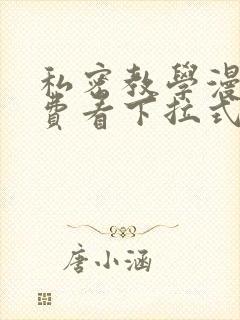 私密教學漫
費看下拉式
唐小涵